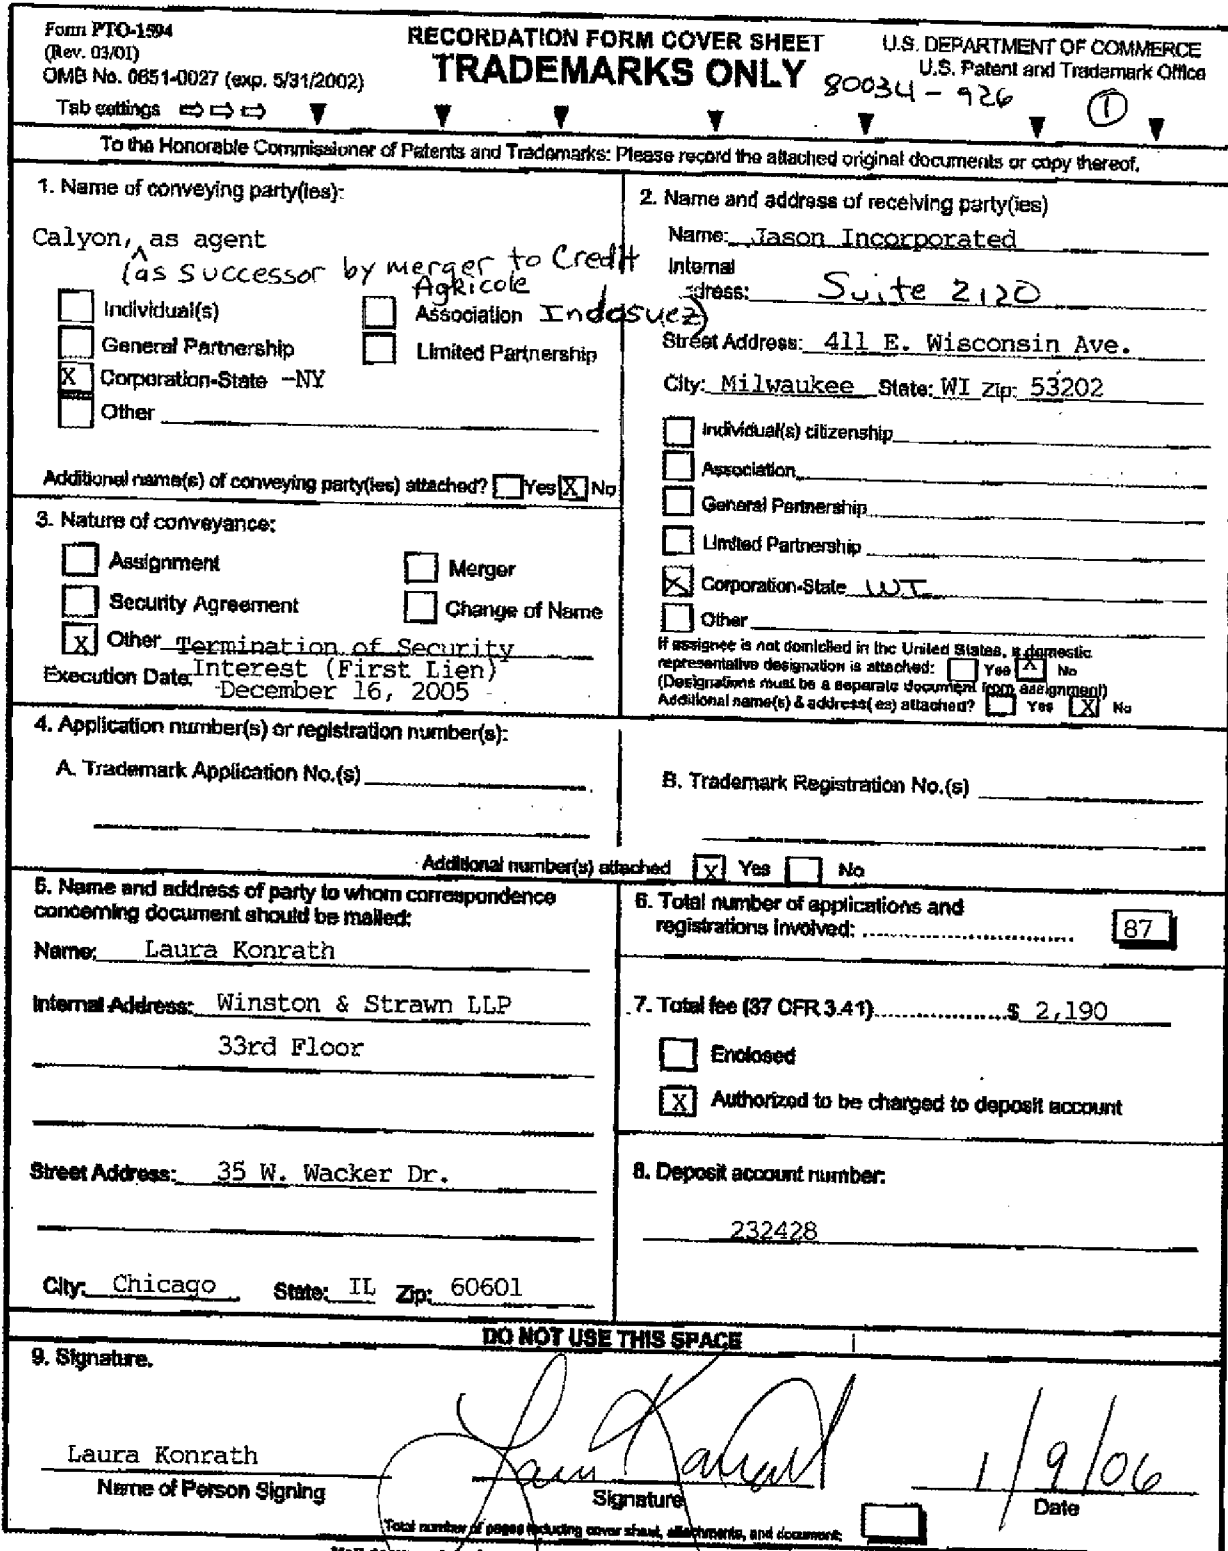 Form PTO-1594
(Rev. 03/01)
OMB No. 0651-0027 (exp. 5/31/2002)
Tab settings
RECORDATION FORM COVER SHEET
TRADEMARKS ONLY
U.S. DEPARTMENT OF COMMERCE
U.S. Patent and Trademark Office
80034-926
1
To the Honorable Commissioner of Patents and Trademarks: Please record the attached original documents or copy thereof.
1. Name of conveying party(ies):
Calyon, as agent
(as Successor by merger to Credit
Agricole
Indosuez)
Individual(s)
Association
General Partnership
Limited Partnership
X Corporation-State -NY
Other
Additional name(s) of conveying party(ies) attached? Yes X No
2. Name and address of receiving party(ies)
Name: Jason Incorporated
Internal
dress: Suite 2120
Street Address: 411 E. Wisconsin Ave.
City: Milwaukee State: WI Zip: 53202
Individual(s) citizenship
Association
General Partnership
Limited Partnership
X Corporation-State WI
Other
If assignee is not domiciled in the United States, a domestic
representative designation is attached: Yes X No
(Designations must be a separate document from assignment)
Additional name(s) & address(es) attached? Yes X No
3. Nature of conveyance:
Assignment
Merger
Security Agreement
Change of Name
X Other Termination of Security
Interest (First Lien)
Execution Date: December 16, 2005
4. Application number(s) or registration number(s):
A. Trademark Application No.(s)
B. Trademark Registration No.(s)
Additional number(s) attached X Yes No
5. Name and address of party to whom correspondence
concerning document should be mailed:
Name: Laura Konrath
Internal Address: Winston & Strawn LLP
33rd Floor
Street Address: 35 W. Wacker Dr.
City: Chicago State: IL Zip: 60601
6. Total number of applications and
registrations involved: 87
7. Total fee (37 CFR 3.41) $ 2,190
Enclosed
X Authorized to be charged to deposit account
8. Deposit account number:
232428
DO NOT USE THIS SPACE
9. Signature.
Laura Konrath
Name of Person Signing
Signature
1/9/06
Date
Total number of pages including cover sheet, attachments, and document: